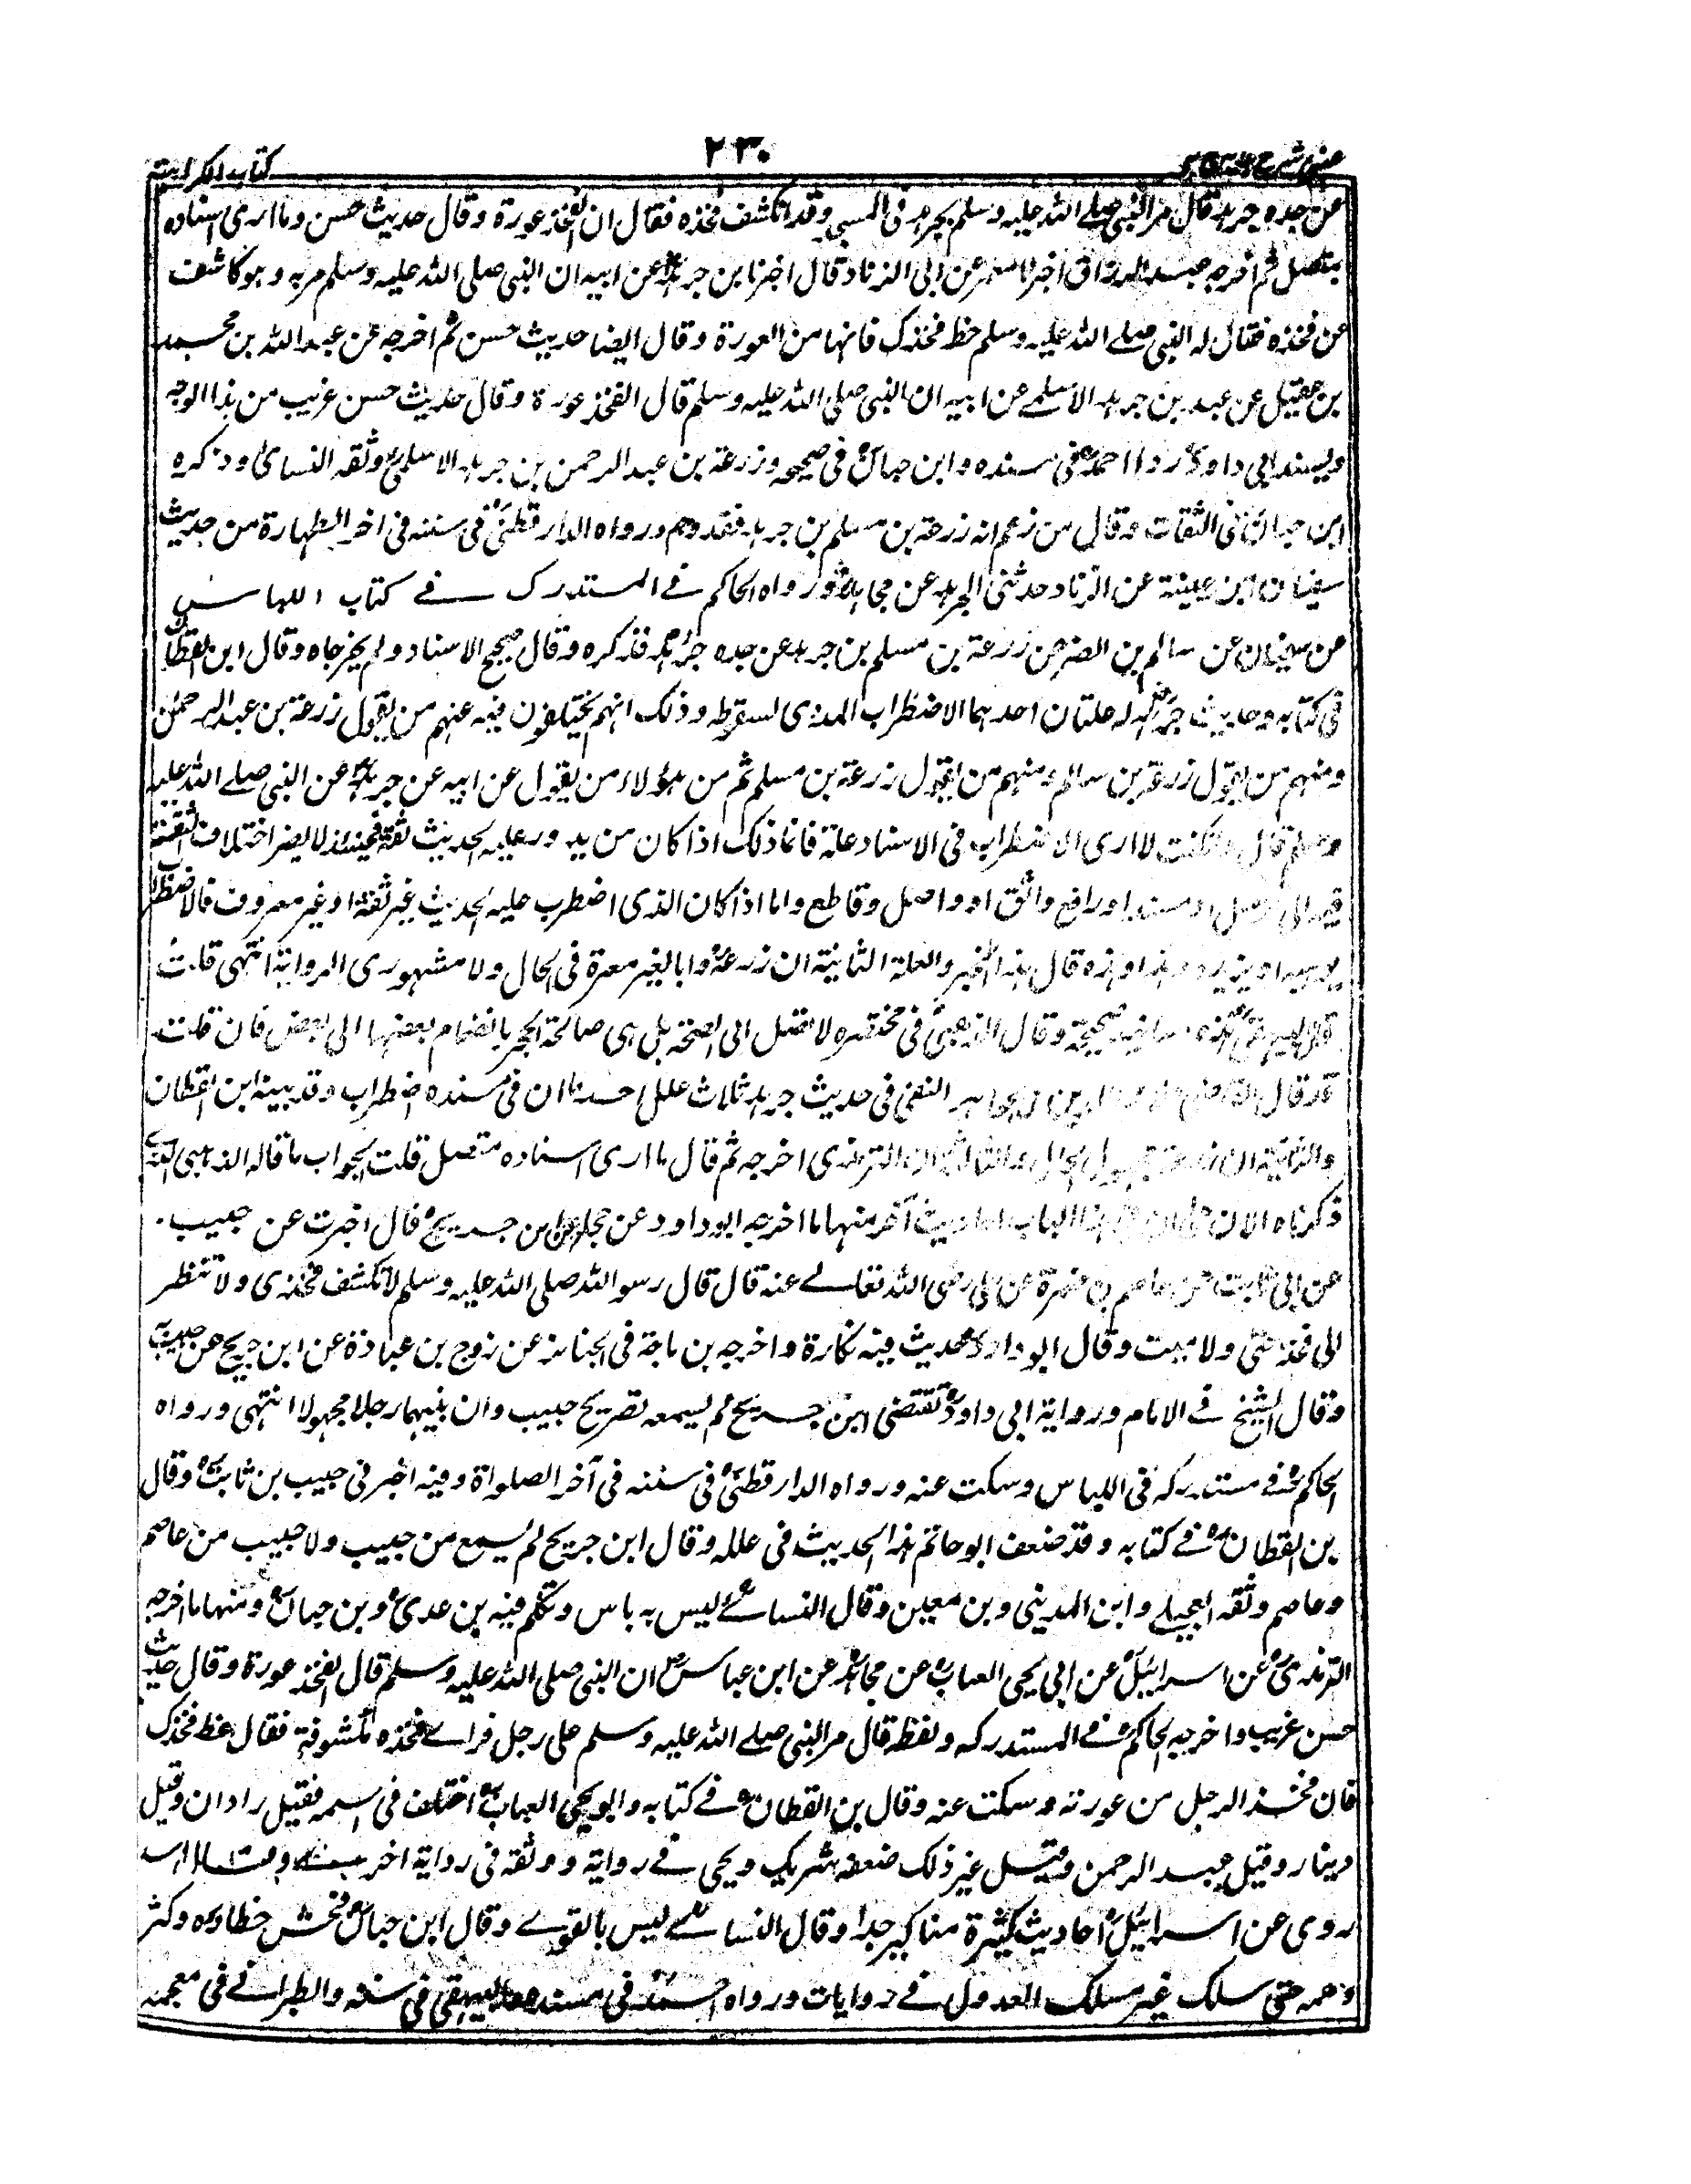 ٢٣٠
كتاب الكراهية
عن جده جرهد قال مر النبي صلے الله عليه وسلم بجرهد فى المسجد وقد انكشف فخذه فقال ان الفخذ عورة وقال حديث حسن وما ارى اسناده
بمتصل ثم اخرجه عبد الرزاق اخبرنا معمر عن ابى الزناد قال اخبرنا بن جرهد عن ابيه ان النبى صلى الله عليه وسلم مر به وهو كاشف
عن فخذه فقال له النبى صلے الله عليه وسلم خط فخذك فانها من العورة وقال ايضا حديث حسن ثم اخرجه عن عبد الله بن محمد
بن عقيل عن عبد بن جرهد الاسلمے عن ابيه ان النبى صلى الله عليه وسلم قال الفخذ عورة وقال حديث حسن غريب من هذا الوجه
وبسند ابى داود رواا احمد فى مسنده وابن حبان فى صحيحه وزرعة بن عبد الرحمن بن جرهد الاسلمى وثقه النسائى وذكره
ابن حبان فى الثقات وقال من زعم انه زرعة بن مسلم بن جرهد فقد وهم ورواه الدارقطنى فى سننه فى اخر الطهارة من حديث
سفيان ابن عيينة عن الزناد حدثنى الجرهد عن ورواه الحاكم فے المستدرك فے كتاب اللباس
عن سفيان عن سالم بن النضر عن زرعة بن مسلم بن جرهد عن جده جرهد فذكره وقال صحيح الاسناد ولم يخرجاه وقال ابن القطان
فى كتابه وحديث جرهد له علتان احدهما الاضطراب المدنى لسقوطه وذلك انهم يختلفون فيه عنهم من يقول زرعة بن عبد الرحمن
ومنهم من يقول زرعة بن سالم ومنهم من يقول زرعة بن مسلم ثم من هؤلاء من يقول عن ابيه عن جرهد عن النبى صلے الله عليه
وسلم قال وكنت لا ارى الاضطراب فى الاسناد علة فانما ذلك اذا كان من يدور عليه الحديث ثقة فحينئذ لا يضر اختلاف الثقة
فيه الى مرسل او مسند او رافع واثق او واصل وقاطع واما اذا كان الذى اضطرب عليه الحديث غير ثقة او غير معروف فالاضطراب
قال هذا الخبر والعلة الثانية ان زرعة وابا لغير معرة فى الحال ولا مشهورى الرواية انتهى قلت
قال البيهقى هذه اسانيد صحيحة وقال الذهبى فى مختصره لا تصل الى الصحة بل هى صالحة الحجر بانضمام بعضها الى بعض فان قلت
قد قال النفى فى حديث جرهد ثلاث علل احدها ان فى سنده اضطراب وقد بينه ابن القطان
والثانية ان زرعة مجهول الحال والثالثة ان الترمذى اخرجه ثم قال ما ارى اسناده متصل قلت الجواب ما قاله الذهبى الذى
ذكرناه الان هذا الباب احاديث آخر منها ما اخرجه ابوداود عن ابن جريج قال اخبرت عن حبيب.
عن ابى ثابت عن عاصم بن ضمرة عن على رضى الله تعالے عنه قال قال رسو الله صلى الله عليه وسلم لا تكشف فخذى ولا تنظر
الى فخذ حى ولا ميت وقال ابوداود حديث فيه نكارة واخرجه بن ماجة فى الجنائز عن زوج بن عبادة عن ابن جريج عن حبيب
وقال الشيخ فے الامام ورواية ابى داود تقتضى ابن جريج لم يسمعه تصريح حبيب وان بينهما رجلا مجهولا انتهى ورواه
الحاكم فے مستدركه فى اللباس وسكت عنه ورواه الدارقطنى فى سننه فى آخر الصلواة وفيه اخبرنى حبيب بن ثابت وقال
بن القطان فے كتابه وقد ضعف ابو حاتم هذا الحديث فى علله وقال ابن جريج لم يسمع من حبيب ولا حبيب من عاصم
وعاصم وثقه العجيلے وابن المدينى وبن معين وقال النسائے ليس به باس وتكلم فيه بن عدى وبن حبان ومنها ما اخرجه
الترمذى عن اسرائيل عن ابى يحيى العباب عن مجاهد عن ابن عباس ان النبى صلى الله عليه وسلم قال الفخذ عورة وقال حديث
حسن غريب واخرجه الحاكم فے المستدركه ولفظه قال مر النبى صلے الله عليه وسلم على رجل فراے فخذه مكشوفة فقال غط فخذك
فان فخذ الرجل من عورته وسكت عنه وقال بن القطان فے كتابه وابو يحيى العباب اختلف فى اسمه فقيل رادان وقيل
دينار وقيل عبد الرحمن وقيل غير ذلك ضعفه شريك ويحى فے رواية ووثقه فى رواية اخر
روى عن اسرائيل احاديث كثيرة مناكير جدا وقال النسائے ليس بالقوے وقال ابن حبان فحش خطاوه وكثر
وهمه حتى سلك غير مسلك العدول فے روايات ورواه احمد فى مسنده والبيهقى فى سننه والطبرانے فى معجمه